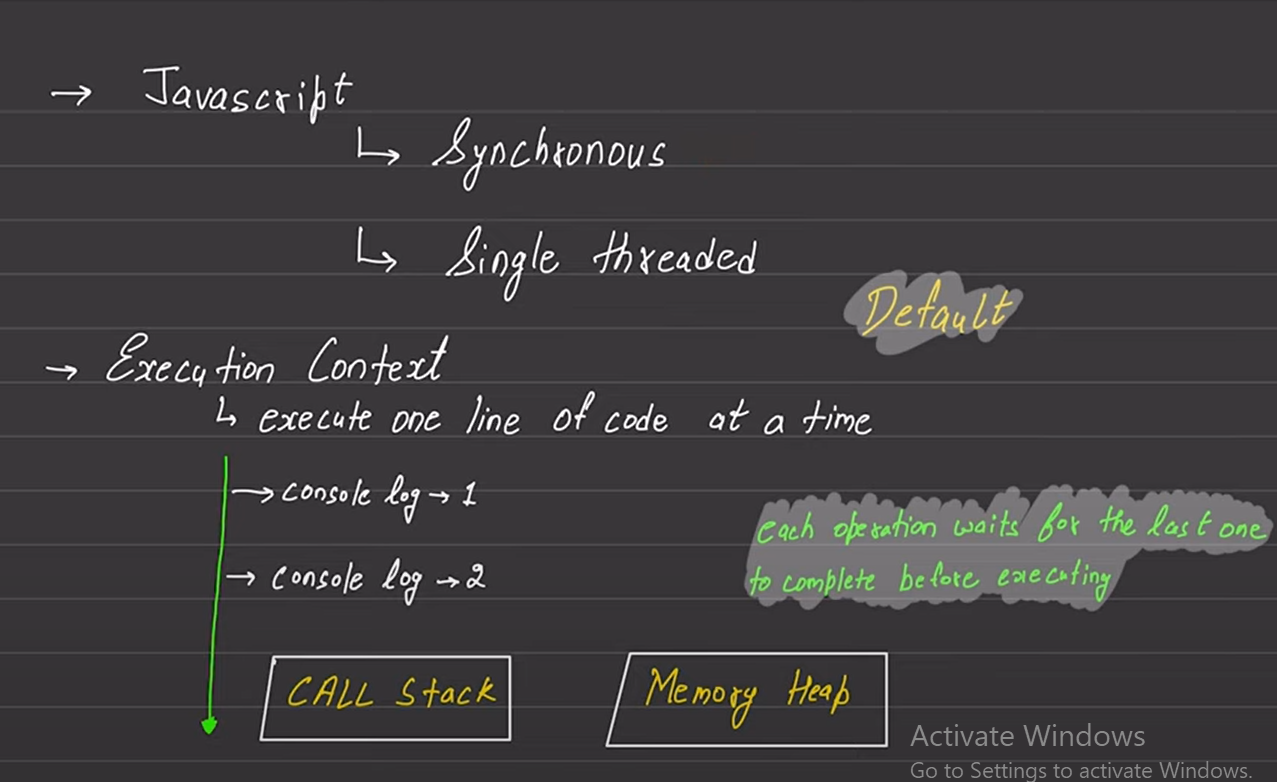 → Javascript
↳ Synchronous
↳ Single threaded
Default
→ Execution Context
↳ execute one line of code at a time
→ console log → 1
each operation waits for the last one
to complete before executing
→ console log → 2
CALL Stack
Memory Heap
Activate Windows
Go to Settings to activate Windows.